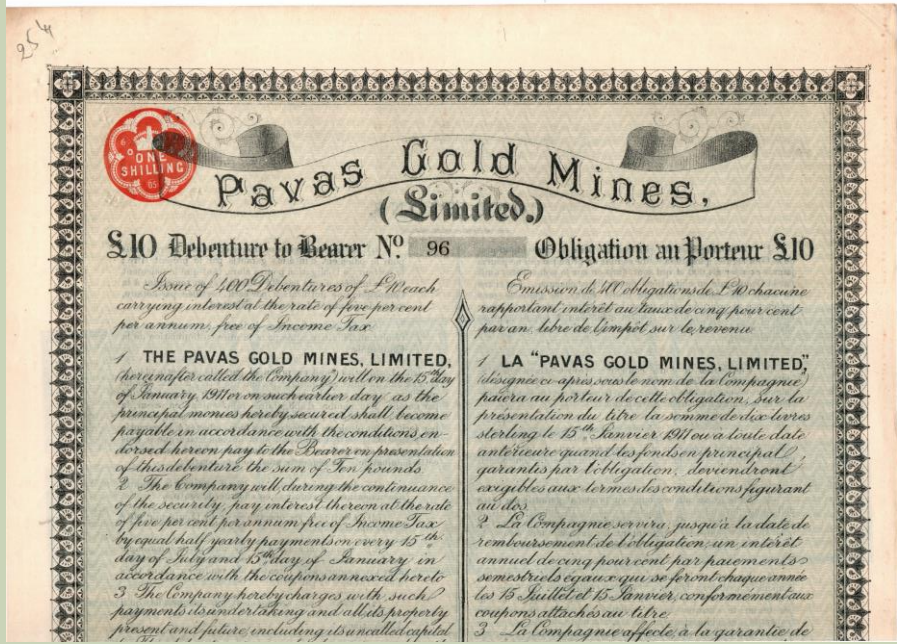 25 4
ONE
SHILLING
05
Pavas Gold Mines,
(Limited.)
£10 Debenture to Bearer Nº 96 Obligation au Porteur £10
Issue of 400 Debentures of £10 each
carrying interest at the rate of five per cent
per annum, free of Income Tax
1 THE PAVAS GOLD MINES, LIMITED,
(hereinafter called the Company") will on the 15th day
of January, 1911 or on such earlier day as the
principal monies hereby secured shall become
payable in accordance with the conditions en-
dorsed hereon pay to the Bearer on presentation
of this debenture the sum of Ten pounds
2 The Company will, during the continuance
of the security, pay interest thereon at the rate
of five per cent per annum free of Income Tax
by equal half yearly payments on every 15th
day of July and 15th day of January in
accordance with the coupons annexed hereto
3 The Company hereby charges with such
payments its undertaking and all its property
present and future, including its uncalled capital
Emission de 400 obligations de £10 chacune
rapportant intérêt au taux de cinq pour cent
par an libre de l'impôt sur le revenu
1 LA "PAVAS GOLD MINES, LIMITED,"
(désignée ci-après sous le nom de la Compagnie)
paiera au porteur de cette obligation, sur la
présentation du titre la somme de dix livres
sterling le 15th Janvier 1911 ou à toute date
antérieure quand les fonds en principal,
garantis par l'obligation, deviendront
exigibles aux termes des conditions figurant
au dos.
2 La Compagnie servira, jusqu'à la date de
remboursement de l'obligation, un intérêt
annuel de cinq pour cent par paiements
semestriels égaux qui se feront chaque année
les 15 Juillet et 15 Janvier, conformément aux
coupons attachés au titre
3 La Compagnie affecte, à la garantie de